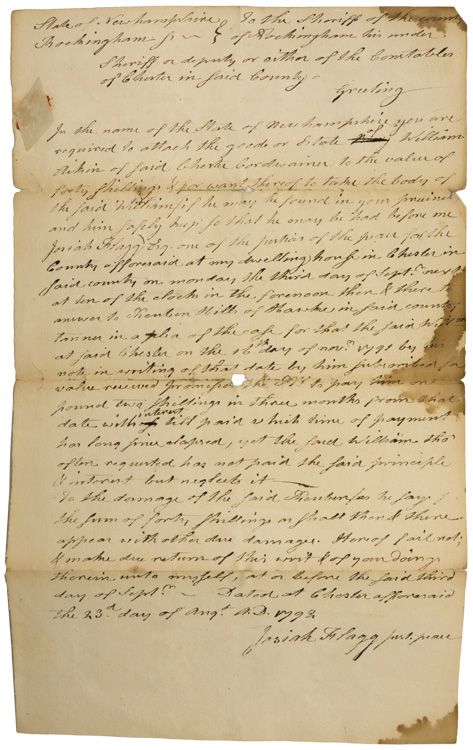 State of Newhampshire } To the Sheriff of the county
Rockingham ss } of Rockingham his under
Sheriff or deputy or either of the Constables
of Chester in said County –
Greeting
In the name of the State of Newhampshire you are
required to attach the goods or Estate of William
Aikin of said Chester Cordwainer to the value of
forty shillings & for want thereof to take the body of
the said William if he may be found in your precinct
and him safely keep so that he may be had before me
Josiah Flagg Esq. one of the justices of the peace for the
County afforesaid at my dwelling house in Chester in
said county on monday the third day of Septr. next
at ten of the clock in the forenoon then & there to
answer to Reuben Hills of Hawke in said county
tanner in a plea of the case for that the said William
at said Chester on the 16th day of novr. 1791 by his
note in writing of that date by him subscribed for
value received promised the Pl. to pay him one
pound two shillings in three months from that
date with interest till paid which time of payment
has long since elapsed, yet the said William tho
often requested has not paid the said principle
& interest but neglects it –
To the damage of the said Reuben as he says
the sum of forty shillings as shall then & there
appear with other due damages. Hereof fail not;
& make due return of this writ & of your doings
therein unto myself, at or before the said third
day of Septr. – Dated at Chester afforesaid
the 23d. day of Augt. A.D. 1792
Josiah Flagg just. peace